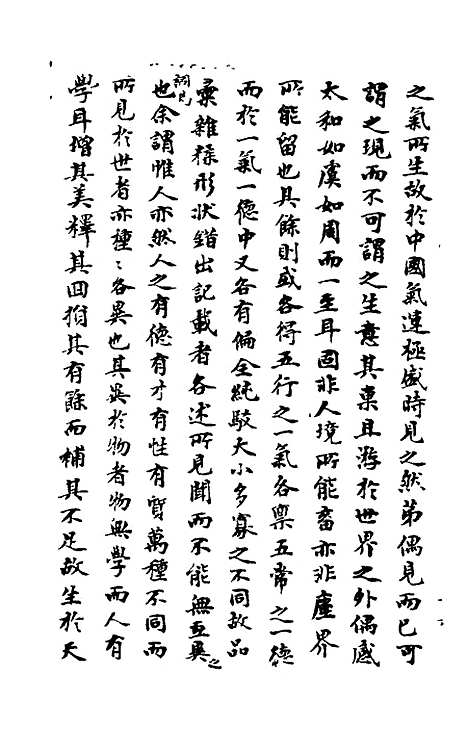 之氣所生故於中國氣運極盛時見之然第偶見而已可
謂之現而不可謂之生意其稟且游於世界之外偶感
太和如虞如周而一至耳固非人境所能畜亦非塵界
所能留也其餘則或各得五行之一氣各稟五常之一德
而於一氣一德中又各有偏全純駁大小多寡之不同故品
彙雜糅形狀錯出記載者各述所見聞而不能無互異之
詞見
也余謂惟人亦然人之有德有才有性有質萬種不同而
所見於世者亦種〻各異也其異於物者物無學而人有
學耳增其美釋其回損其有餘而補其不足故生於天